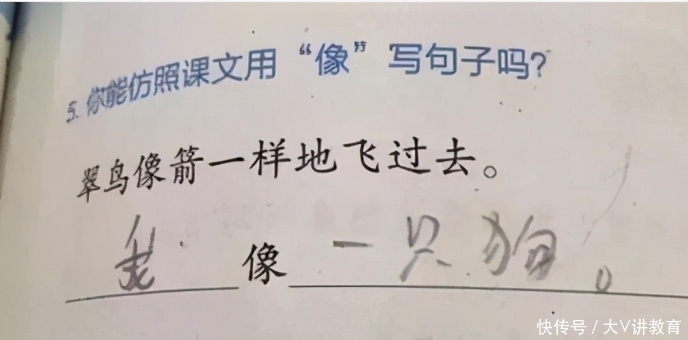 5. 你能仿照课文用“像”写句子吗?
翠鸟像箭一样地飞过去。
我像一只狗。
快传号/大V讲教育